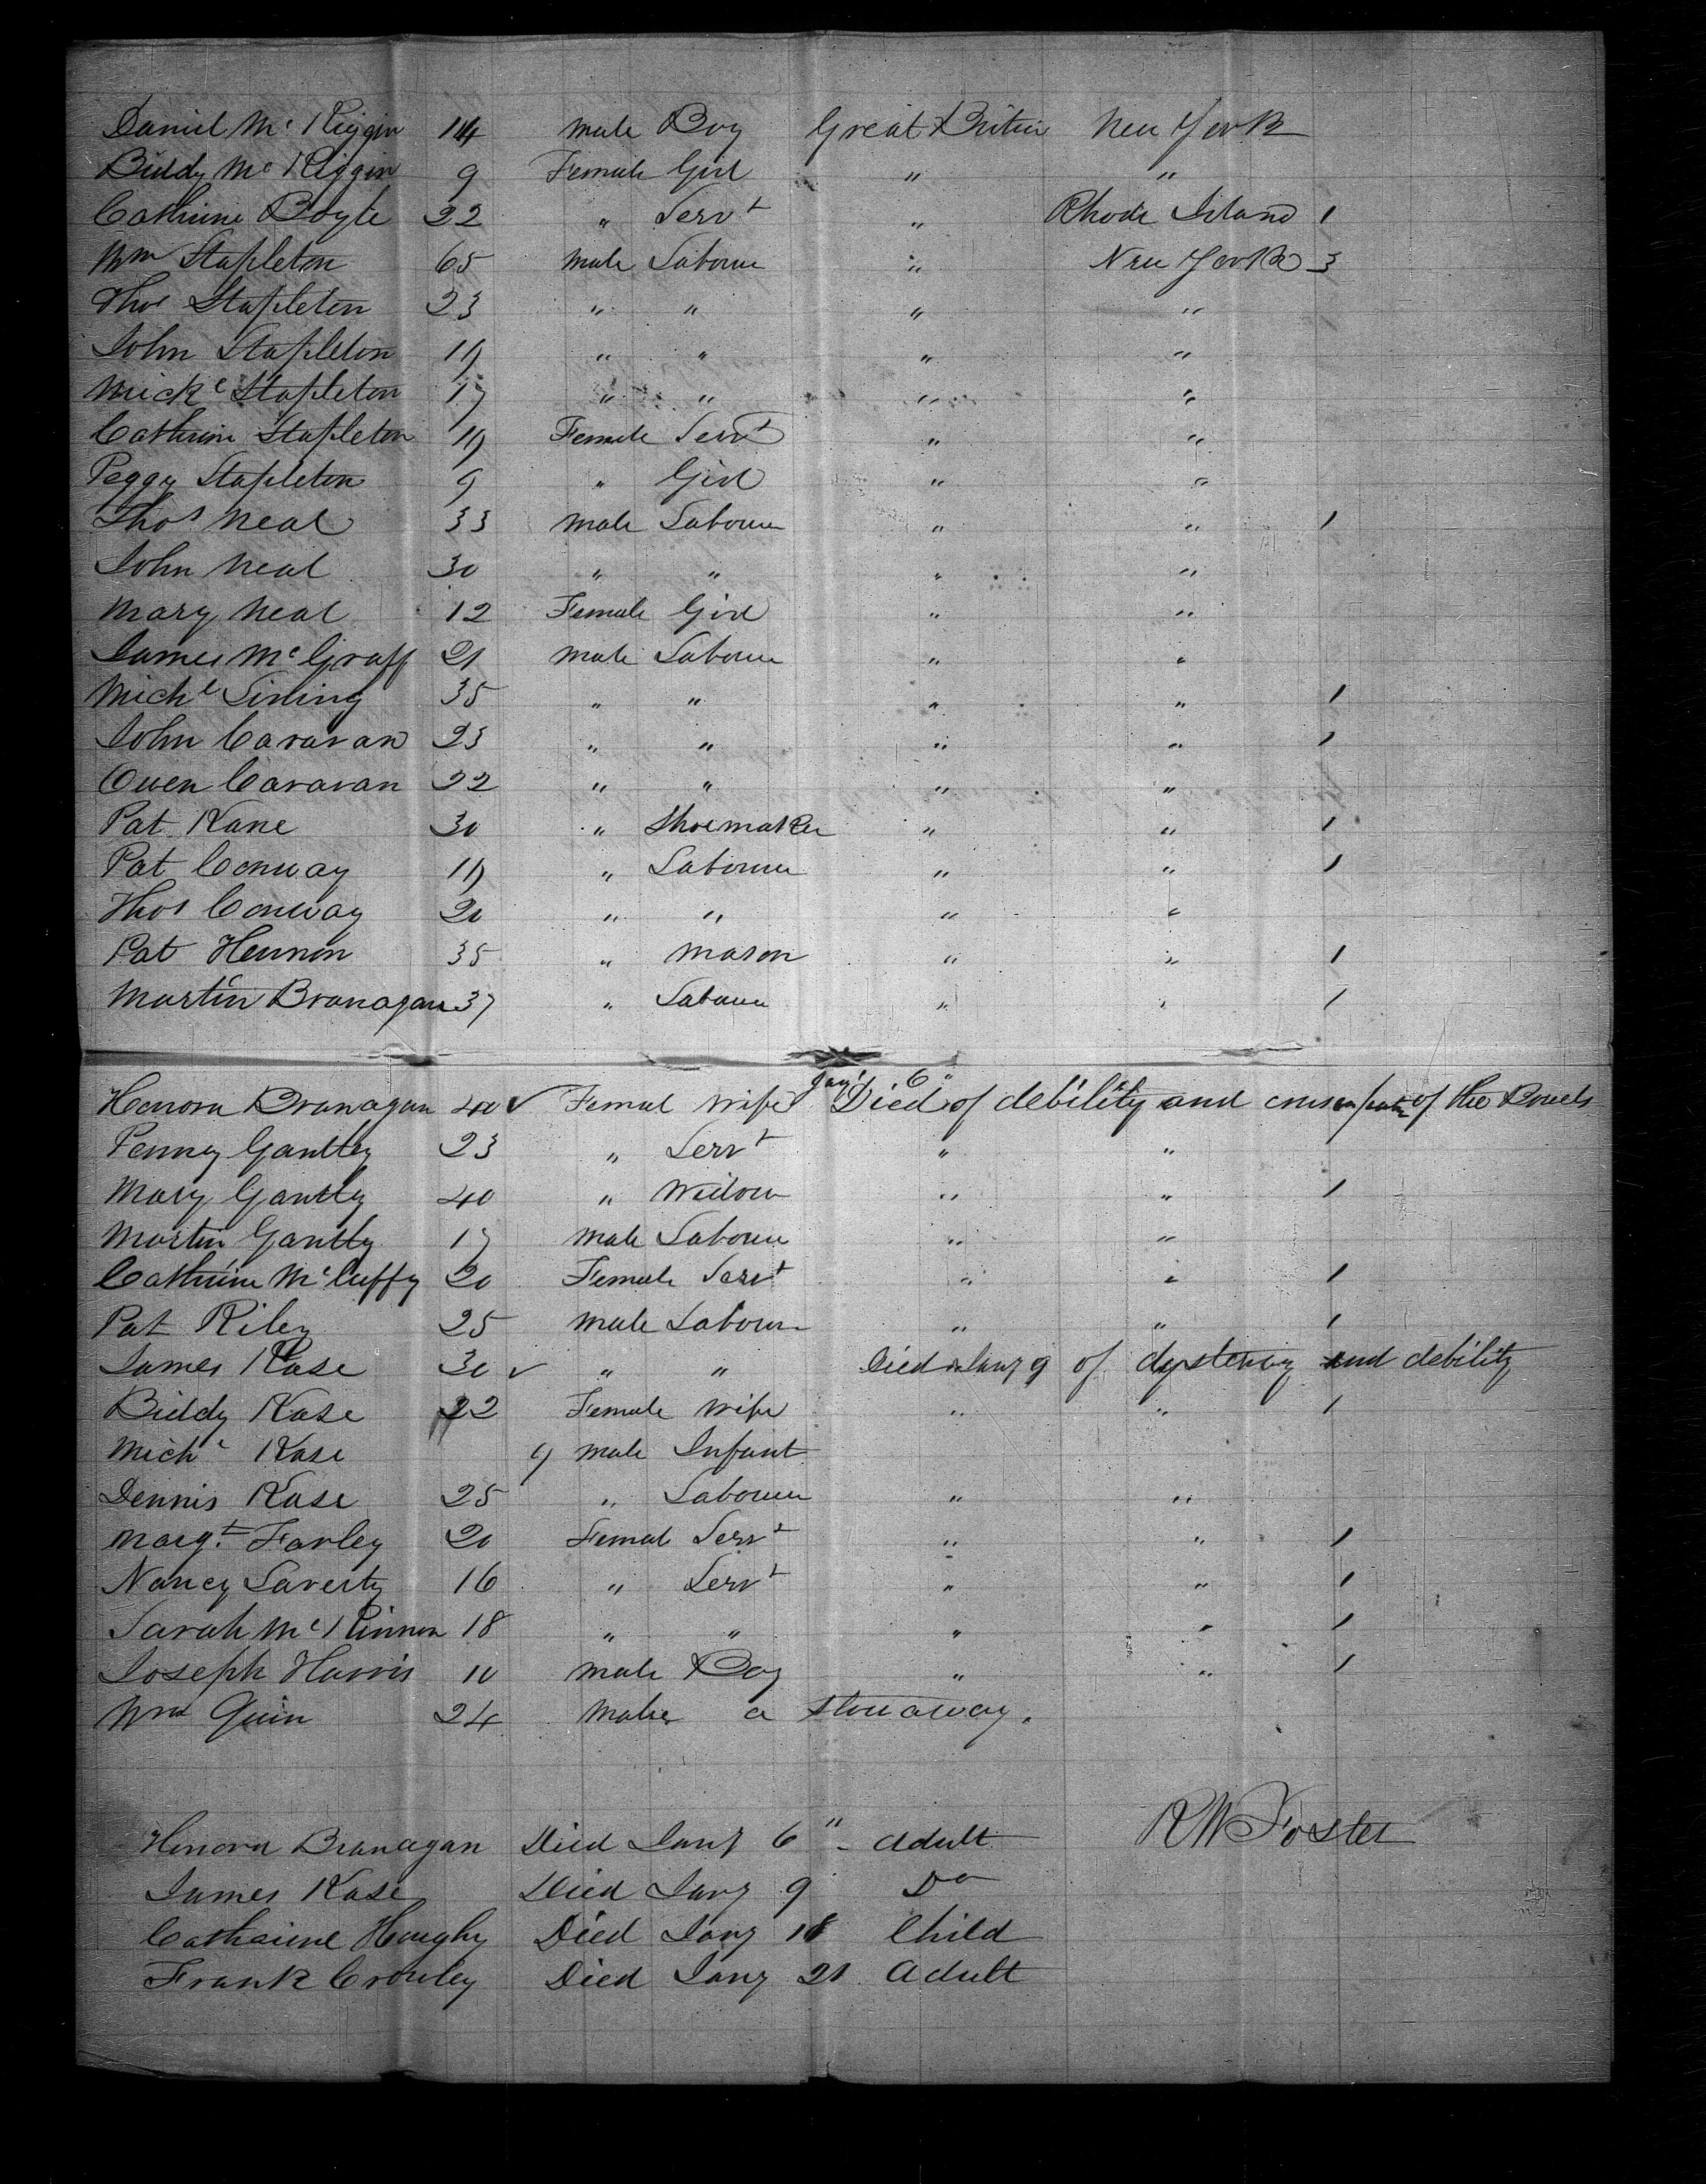 Daniel Mc Kiggin 14 male Boy Great Britain New York
Biddy Mc Kiggin 9 Female Girl " "
Cathrine Boyle 22 " Servt " Rhode Island 1
Wm Stapleton 65 male Labourer " New York 3
Thos Stapleton 23 " " " "
John Stapleton 19 " " " "
Mickl Stapleton 17 " " " "
Cathrine Stapleton 19 Female Servt " "
Peggy Stapleton 9 " Girl " "
Thos Neal 33 male Labourer " " 1
John Neal 30 " " " "
Mary Neal 12 Female Girl " "
James Mc Graff 21 male Labourer " "
Michl Lining 35 " " " " 1
John Cavavan 23 " " " " 1
Owen Cavavan 22 " " " "
Pat Kane 30 " Shoemaker " " 1
Pat Conway 19 " Labourer " " 1
Thos Conway 20 " " " "
Pat Hennon 35 " mason " " 1
Martin Branagan 37 " Labourer " " 1
Honora Branagan 40 ✓ Femal Wife Jany 6" Died of debility and of the Bowels
Penney Gantley 23 " Servt " "
Mary Gantly 40 " Widow " " 1
Martin Gantly 17 male Labourer " "
Cathrine Mc Cuffy 20 Female Servt " " 1
Pat Riley 25 male Labourer " " 1
James Kase 30 ✓ " " Died Jany 9 of dystenoy and debility
Biddy Kase 22 Female Wife " " 1
Michl Kase 9 male Infant
Dennis Kase 25 " Labourer " "
Margt Farley 20 Female Servt " " 1
Nancy Laverty 16 " Servt " " 1
Sarah Mc Kinnon 18 " " " " 1
Joseph Harris 10 male Boy " " 1
Wm Quin 24 male a stowaway.
R W Foster
Honora Branagan Died Jany 6" - adult
James Kase Died Jany 9 Do
Cathairine Houghy Died Jany 18 Child
Frank Crowley Died Jany 21 adult